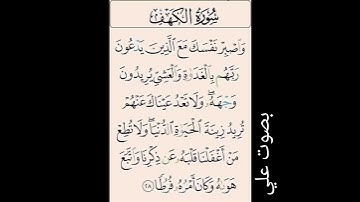 سُورَةُ الْكَهْفِ
وَاصْبِرْ نَفْسَكَ مَعَ الَّذِينَ يَدْعُونَ
رَبَّهُم بِالْغَدَاةِ وَالْعَشِيِّ يُرِيدُونَ
وَجْهَهُ وَلَا تَعْدُ عَيْنَاكَ عَنْهُمْ
تُرِيدُ زِينَةَ الْحَيَاةِ الدُّنْيَا وَلَا تُطِعْ
مَنْ أَغْفَلْنَا قَلْبَهُ عَن ذِكْرِنَا وَاتَّبَعَ
هَوَاهُ وَكَانَ أَمْرُهُ فُرُطًا ٢٨
بصوت علي